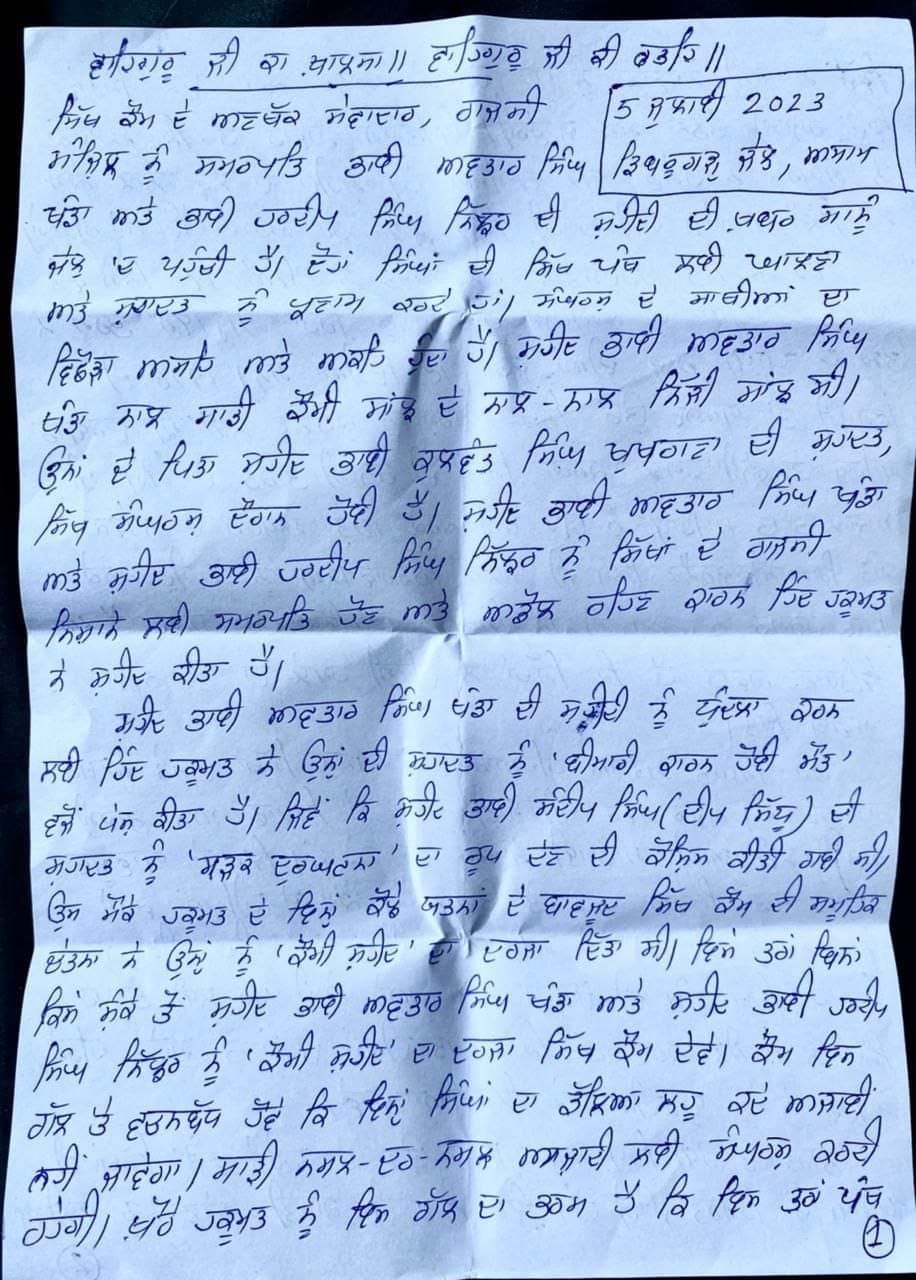 ਵਾਹਿਗੁਰੂ ਜੀ ਕਾ ਖ਼ਾਲਸਾ॥ ਵਾਹਿਗੁਰੂ ਜੀ ਕੀ ਫਤਹਿ॥
5 ਜੁਲਾਈ 2023
ਡਿਬਰੂਗੜ੍ਹ ਜੇਲ, ਅਸਾਮ
ਸਿੱਖ ਕੌਮ ਦੇ ਅਣਥੱਕ ਸੇਵਾਦਾਰ, ਰਾਜਸੀ
ਮੰਜ਼ਿਲ ਨੂੰ ਸਮਰਪਤਿ ਭਾਈ ਅਵਤਾਰ ਸਿੰਘ
ਖੰਡਾ ਅਤੇ ਭਾਈ ਹਰਦੀਪ ਸਿੰਘ ਨਿੱਝਰ ਦੀ ਸ਼ਹੀਦੀ ਦੀ ਖ਼ਬਰ ਸਾਨੂੰ
ਜੇਲ 'ਚ ਪਹੁੰਚੀ ਹੈ। ਦੋਹਾਂ ਸਿੰਘਾਂ ਦੀ ਸਿੱਖ ਪੰਥ ਲਈ ਘਾਲਣਾ
ਅਤੇ ਸ਼ਹਾਦਤ ਨੂੰ ਪ੍ਰਣਾਮ ਕਰਦੇ ਹਾਂ। ਸੰਘਰਸ਼ ਦੇ ਸਾਥੀਆਂ ਦਾ
ਵਿਛੋੜਾ ਅਸਹਿ ਅਤੇ ਅਕਹਿ ਹੁੰਦਾ ਹੈ। ਸ਼ਹੀਦ ਭਾਈ ਅਵਤਾਰ ਸਿੰਘ
ਖੰਡਾ ਨਾਲ ਸਾਡੀ ਕੌਮੀ ਸਾਂਝ ਦੇ ਨਾਲ-ਨਾਲ ਨਿੱਜੀ ਸਾਂਝ ਸੀ।
ਉਨ੍ਹਾਂ ਦੇ ਪਿਤਾ ਸ਼ਹੀਦ ਭਾਈ ਕੁਲਵੰਤ ਸਿੰਘ ਖੁਖਰਾਣਾ ਦੀ ਸ਼ਹਾਦਤ,
ਸਿੱਖ ਸੰਘਰਸ਼ ਦੌਰਾਨ ਹੋਈ ਹੈ। ਸ਼ਹੀਦ ਭਾਈ ਅਵਤਾਰ ਸਿੰਘ ਖੰਡਾ
ਅਤੇ ਸ਼ਹੀਦ ਭਾਈ ਹਰਦੀਪ ਸਿੰਘ ਨਿੱਝਰ ਨੂੰ ਸਿੱਖਾਂ ਦੇ ਰਾਜਸੀ
ਨਿਸ਼ਾਨੇ ਲਈ ਸਮਰਪਤਿ ਹੋਣ ਅਤੇ ਅਡੋਲ ਰਹਿਣ ਕਾਰਨ ਹਿੰਦ ਹਕੂਮਤ
ਨੇ ਸ਼ਹੀਦ ਕੀਤਾ ਹੈ।
ਸ਼ਹੀਦ ਭਾਈ ਅਵਤਾਰ ਸਿੰਘ ਖੰਡਾ ਦੀ ਸ਼ਹੀਦੀ ਨੂੰ ਧੁੰਦਲਾ ਕਰਨ
ਲਈ ਹਿੰਦ ਹਕੂਮਤ ਨੇ ਉਨ੍ਹਾਂ ਦੀ ਸ਼ਹਾਦਤ ਨੂੰ 'ਬੀਮਾਰੀ ਕਾਰਨ ਹੋਈ ਮੌਤ'
ਵਜੋਂ ਪੇਸ਼ ਕੀਤਾ ਹੈ। ਜਿਵੇਂ ਕਿ ਸ਼ਹੀਦ ਭਾਈ ਸੰਦੀਪ ਸਿੰਘ (ਦੀਪ ਸਿੱਧੂ) ਦੀ
ਸ਼ਹਾਦਤ ਨੂੰ 'ਸੜਕ ਦੁਰਘਟਨਾ' ਦਾ ਰੂਪ ਦੇਣ ਦੀ ਕੋਸ਼ਿਸ਼ ਕੀਤੀ ਗਈ ਸੀ।
ਉਸ ਮੌਕੇ ਹਕੂਮਤ ਦੇ ਇਨ੍ਹਾਂ ਕੋਝੇ ਯਤਨਾਂ ਦੇ ਬਾਵਜੂਦ ਸਿੱਖ ਕੌਮ ਦੀ ਸਮੂਹਿਕ
ਚੇਤਨਾ ਨੇ ਉਨ੍ਹਾਂ ਨੂੰ 'ਕੌਮੀ ਸ਼ਹੀਦ' ਦਾ ਦਰਜਾ ਦਿੱਤਾ ਸੀ। ਇਸੇ ਤਰਾਂ ਬਿਨਾਂ
ਕਿਸੇ ਸ਼ੰਕੇ ਤੋਂ ਸ਼ਹੀਦ ਭਾਈ ਅਵਤਾਰ ਸਿੰਘ ਖੰਡਾ ਅਤੇ ਸ਼ਹੀਦ ਭਾਈ ਹਰਦੀਪ
ਸਿੰਘ ਨਿੱਝਰ ਨੂੰ 'ਕੌਮੀ ਸ਼ਹੀਦ' ਦਾ ਦਰਜਾ ਸਿੱਖ ਕੌਮ ਦੇਵੇ। ਕੌਮ ਇਸ
ਗੱਲ ਤੇ ਵਚਨਬੱਧ ਹੋਵੇ ਕਿ ਇਨ੍ਹਾਂ ਸਿੰਘਾਂ ਦਾ ਡੁੱਲਿਆ ਲਹੂ ਕਦੇ ਅਜਾਈਂ
ਨਹੀਂ ਜਾਵੇਗਾ। ਸਾਡੀ ਨਸਲ-ਦਰ-ਨਸਲ ਅਜ਼ਾਦੀ ਲਈ ਸੰਘਰਸ਼ ਕਰਦੀ
ਰਹੇਗੀ। ਖ਼ੈਰ ਹਕੂਮਤ ਨੂੰ ਇਸ ਗੱਲ ਦਾ ਭਰਮ ਹੈ ਕਿ ਇਸ ਤਰਾਂ ਪੰਥ
1